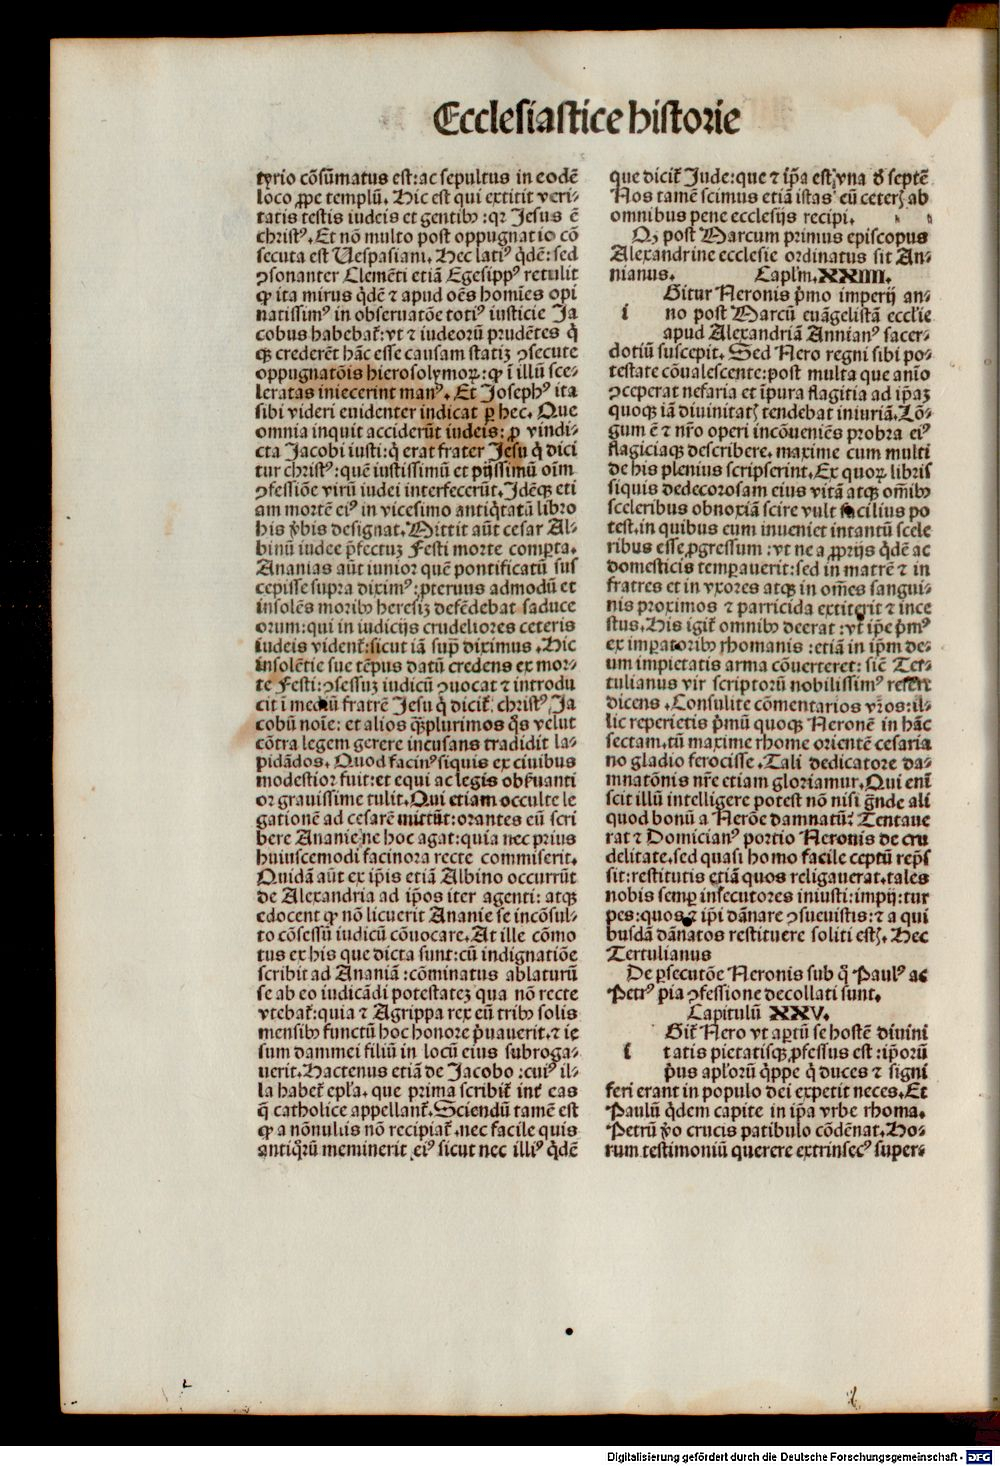 Ecclesiastice historie
tyrio cōsūmatus est: ac sepultus in eodē
loco ꝓpe templū. Hic est qui extitit veri⸗
tatis testis iudeis et gentibꝰ: qr Jesus ē
christꝰ. Et nō multo post oppugnatio cō
secuta est Uespasiani. Hec latiꝰ q̄dē: sed
ꝯsonanter Clemēti etiā Egesippꝰ retulit
ꝙ ita mirus q̄dē ⁊ apud oēs homīes opi
natissimꝰ in obseruatōe totiꝰ iusticie Ja
cobus habebat̄: vt ⁊ iudeorū prudētes q̄
qꝫ crederēt hāc esse causam statiꝫ ꝯsecute
oppugnatōis hierosolymoꝝ: ꝙ ī illū sce⸗
leratas iniecerint manꝰ. Et Josephꝰ ita
sibi videri euidenter indicat ꝑ hec. Que
omnia inquit acciderūt iudeis: ꝓ vindi⸗
cta Jacobi iusti: q̄ erat frater Jesu q̄ dici
tur christꝰ: quē iustissimū et pijssimū oīm
ꝯfessiōe virū iudei interfecerūt. Jdēqꝫ eti
am mortē eiꝰ in vicesimo antiq̇tatū libro
his v̄bis designat. Mittit aūt cesar Al⸗
binū iudee p̄fectuꝫ Festi morte comꝑta.
Ananias aūt iunior quē pontificatū sus
cepisse supra diximꝰ: ꝓteruus admodū et
insolēs moribꝰ heresiꝫ defēdebat saduce
orum: qui in iudicijs crudeliores ceteris
iudeis vident̄: sicut iā supͣ diximus. Hic
insolētie sue tēpus datū credens ex mor⸗
te Festi: ꝯsessuꝫ iudicū ꝯuocat ⁊ introdu
cit ī mediū fratrē Jesu q̄ dicit̄ christꝰ Ja
cobū noīe: et alios qͣꝫplurimos q̊s velut
cōtra legem gerere incusans tradidit la⸗
pidādos. Quod facinꝰ siquis ex ciuibus
modestior fuit: et equi ac legis obẜuanti
or grauissime tulit. Qui etiam occulte le
gationē ad cesarē mittūt: orantes eū scri
bere Ananie ne hoc agat: quia nec prius
huiuscemodi facinora recte commiserit.
Quidā aūt ex ip̄is etiā Albino occurrūt
de Alexandria ad ip̄os iter agenti: atqꝫ
edocent ꝙ nō licuerit Ananie se incōsul⸗
to cōsessū iudicū cōuocare. At ille cōmo
tus ex his que dicta sunt: cū indignatiōe
scribit ad Ananiā: cōminatus ablaturū
se ab eo iudicādi potestateꝫ qua nō recte
vtebat̄: quia ⁊ Agrippa rex eū tribꝰ solis
mensibꝰ functū hoc honore p̄uauerit. ⁊ ie
sum dammei filiū in locū eius subroga⸗
uerit. Hactenus etiā de Jacobo: cuiꝰ il⸗
la habet̄ epl̄a. que prima scribit̄ int̄ eas
q̄ catholice appellant̄. Sciendū tamē est
ꝙ a nōnullis nō recipiat̄. nec facile quis
antiq̊rū meminerit eiꝰ sicut nec illiꝰ q̄dē
que dicit̄ Jude: que ⁊ ip̄a est vna d̄ septē
Nos tamē scimus etiā istas eū ceteꝝ ab
omnibus pene ecclesijs recipi.
Qꝫ post Marcum primus episcopus
Alexandrine ecclesie ordinatus sit An⸗
nianus. Capl̄m. XXIIII.
i
Gitur Neronis p̄mo imperij an⸗
no post Marcū euāgelistā eccl̄ie
apud Alexandriā Annianꝰ sacer⸗
dotiū suscepit. Sed Nero regni sibi po⸗
testate cōualescente: post multa que anīo
ꝯceperat nefaria et īpura flagitia ad ip̄aꝫ
quoqꝫ iā diuinitatꝭ tendebat iniuriā. Lō⸗
gum ē ⁊ nr̄o operi incōueniēs probra eiꝰ
flagiciaqꝫ describere. maxime cum multi
de his plenius scripserint. Ex quoꝝ libris
siquis dedecorosam eius vitā atqꝫ om̄ibꝰ
sceleribus obnoxiā scire vult facilius po
test. in quibus eum inueniet intantū scele
ribus esse ꝓgressum: vt ne a ꝓprijs q̄dē ac
domesticis temꝑauerit: sed in matrē ⁊ in
fratres et in vxores atqꝫ in om̄es sangui⸗
nis proximos ⁊ parricida extiterit ⁊ ince
stus. His igit̄ omnibꝰ deerat: vt ip̄e p̄mꝰ
ex imꝑatoribꝰ rhomanis: etiā in ip̄m de⸗
um impietatis arma cōuerteret: sicē Ter⸗
tulianus vir scriptorū nobilissimꝰ refert
dicens. Consulite cōmentarios vr̄os: il⸗
lic reperietis p̄mū quoqꝫ Neronē in hāc
sectam. tū maxime rhome orientē cesaria
no gladio ferocisse. Tali dedicatore da⸗
mnatōnis nr̄e etiam gloriamur. Qui enī
scit illū intelligere potest nō nisi grāde ali
quod bonū a Nerōe damnatū. Tentaue
rat ⁊ Domicianꝰ portio Neronis de cru
delitate. sed quasi homo facile ceptū rep̄s
sit: restitutis etiā quos religauerat. tales
nobis semꝑ insecutores iniusti: impij: tur
pes: quos ⁊ ip̄i dānare ꝯsueuistis: ⁊ a qui
busdā dānatos restituere soliti estꝭ. Hec
Tertulianus
De ꝑsecutōe Neronis sub q̊ Paulꝰ ac
Petrꝰ pia ꝯfessione decollati sunt.
Capitulū XXV.
i
Git̄ Nero vt aꝑtū se hostē diuini
tatis pietatisqꝫ ꝓfessus est: ip̄orū
p̄us apl̄orū q̄ppe q̄ duces ⁊ signi
feri erant in populo dei expetit neces. Et
Paulū q̄dem capite in ip̄a vrbe rhoma.
Petrū v̄o crucis patibulo cōdēnat. Ho⸗
rum testimoniū querere extrinsecꝰ super⸗
Digitalisierung gefördert durch die Deutsche Forschungsgemeinschaft - DFG